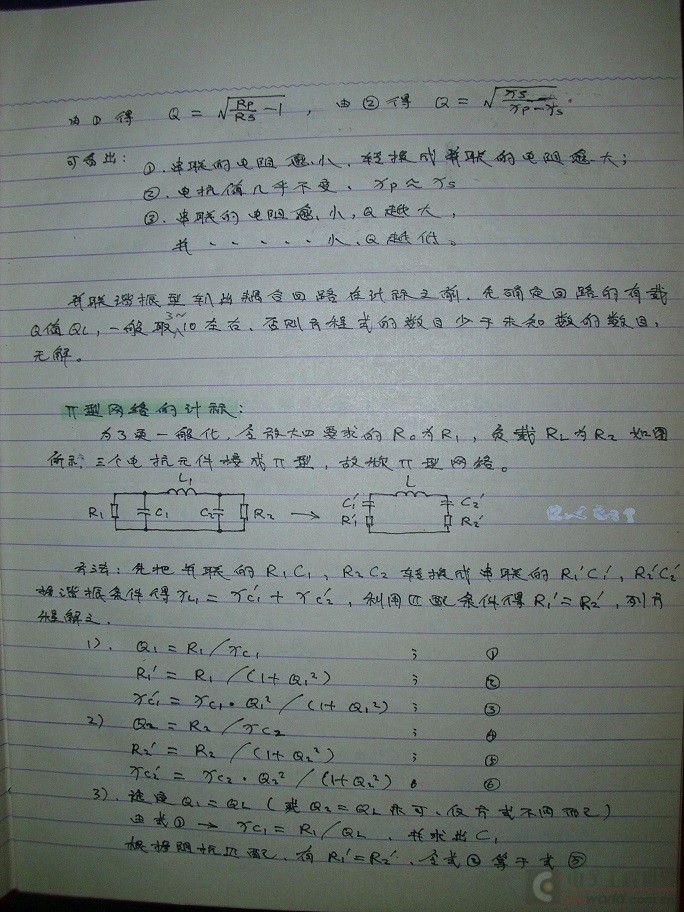 由①得 Q = √(Rp/Rs - 1) , 由②得 Q = √(xs/(xp-xs)).
可看出: ①.串联的电阻愈小、转换成并联的电阻愈大;
②.电抗值几乎不变、xp≈xs
③.串联的电阻愈小,Q越大,
并 · · · · · 小、Q越低。
并联谐振型输出耦合回路在计标之前.先确定回路的有载
Q值QL,一般取3~10左右.否则方程式的数目少于未知数的数目,
无解。
π型网络的计标:
为了更一般化,令放大四要求的Ro为R1,负载RL为R2 如图
所示:三个电抗元件接成π型,故称π型网络。
L1 L
R1 C1 C2 R2 → C1' R1' C2' R2'
方法:先把并联的R1C1,R2C2转换成串联的R1'C1',R2'C2'
按谐振条件得xL1=xc1'+xc2',利用匹配条件得R1'=R2',列方
程解之.
1). Q1=R1/xc1 ; ①
R1'=R1/(1+Q1²) ; ②
xc1'=xc1·Q1²/(1+Q1²) ; ③
2) Q2=R2/xc2 ; ④
R2'=R2/(1+Q2²) ; ⑤
xc2'=xc2·Q2²/(1+Q2²) 。 ⑥
3).选定Q1=QL(或Q2=QL亦可、仅方式不同而已)
由式①→xc1=R1/QL、并求出C1
根据阻抗匹配、有R1'=R2'、令式②等于式⑤